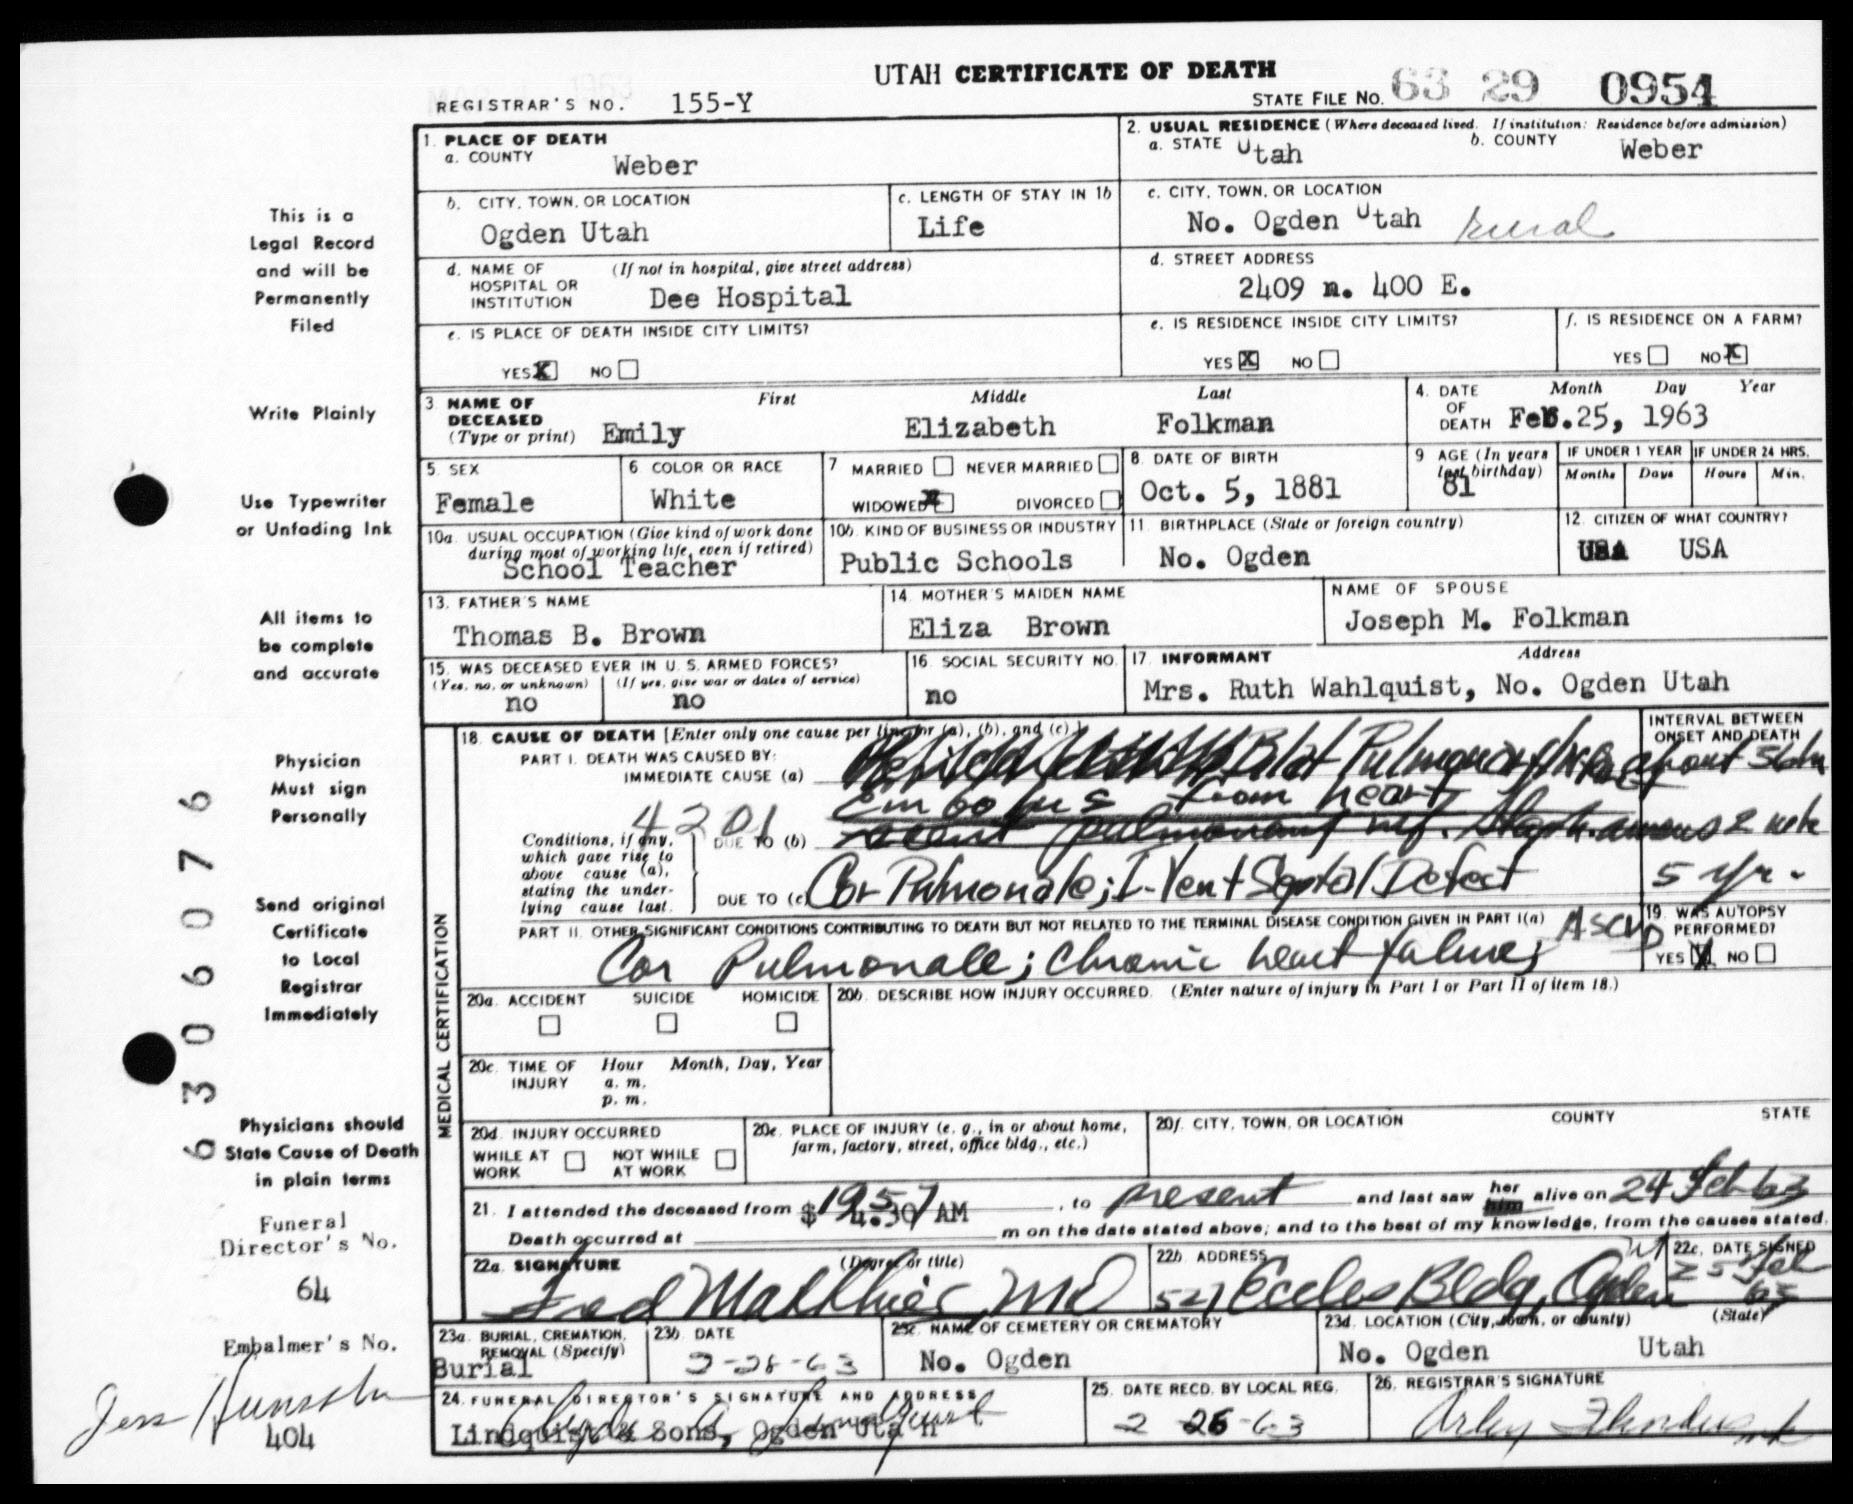 UTAH CERTIFICATE OF DEATH
REGISTRAR'S NO. 155-Y
STATE FILE NO. 63 29 0954
1. PLACE OF DEATH
a. COUNTY Weber
2. USUAL RESIDENCE (Where deceased lived. If institution: Residence before admission)
a. STATE Utah b. COUNTY Weber
b. CITY, TOWN, OR LOCATION Ogden Utah
c. LENGTH OF STAY IN 1b Life
c. CITY, TOWN, OR LOCATION No. Ogden Utah rural
d. NAME OF HOSPITAL OR INSTITUTION (If not in hospital, give street address) Dee Hospital
d. STREET ADDRESS 2409 n. 400 E.
e. IS PLACE OF DEATH INSIDE CITY LIMITS?
YES X NO
e. IS RESIDENCE INSIDE CITY LIMITS?
YES X NO
f. IS RESIDENCE ON A FARM?
YES NO X
3. NAME OF DECEASED (Type or print) First Middle Last
Emily Elizabeth Folkman
4. DATE OF DEATH Month Day Year
Feb.25, 1963
5. SEX Female
6. COLOR OR RACE White
7 MARRIED NEVER MARRIED
WIDOWED X DIVORCED
8. DATE OF BIRTH Oct. 5, 1881
9 AGE (In years last birthday) 81
IF UNDER 1 YEAR Months Days
IF UNDER 24 HRS. Hours Min.
10a. USUAL OCCUPATION (Give kind of work done during most of working life, even if retired)
School Teacher
10b. KIND OF BUSINESS OR INDUSTRY Public Schools
11. BIRTHPLACE (State or foreign country) No. Ogden
12. CITIZEN OF WHAT COUNTRY? USA
13. FATHER'S NAME Thomas B. Brown
14. MOTHER'S MAIDEN NAME Eliza Brown
NAME OF SPOUSE Joseph M. Folkman
15. WAS DECEASED EVER IN U. S. ARMED FORCES?
(Yes, no, or unknown) no
(If yes, give war or dates of service) no
16. SOCIAL SECURITY NO. no
17. INFORMANT Address
Mrs. Ruth Wahlquist, No. Ogden Utah
MEDICAL CERTIFICATION
18. CAUSE OF DEATH [Enter only one cause per line for (a), (b), and (c).]
INTERVAL BETWEEN ONSET AND DEATH
PART I. DEATH WAS CAUSED BY:
IMMEDIATE CAUSE (a) Bilat Pulmonary about
embolus from heart
4201
Conditions, if any, which gave rise to above cause (a), stating the underlying cause last.
DUE TO (b) recent pulmonary inf. 2 wk
DUE TO (c) Cor Pulmonale; I-Vent Septal Defect 5 yr.
PART II. OTHER SIGNIFICANT CONDITIONS CONTRIBUTING TO DEATH BUT NOT RELATED TO THE TERMINAL DISEASE CONDITION GIVEN IN PART I(a)
Cor Pulmonale; Chronic heart failure; ASCVD
19. WAS AUTOPSY PERFORMED?
YES X NO
20a. ACCIDENT SUICIDE HOMICIDE
20b. DESCRIBE HOW INJURY OCCURRED. (Enter nature of injury in Part I or Part II of item 18.)
20c. TIME OF INJURY Hour Month, Day, Year
a. m.
p. m.
20d. INJURY OCCURRED
WHILE AT WORK NOT WHILE AT WORK
20e. PLACE OF INJURY (e. g., in or about home, farm, factory, street, office bldg., etc.)
20f. CITY, TOWN, OR LOCATION COUNTY STATE
21. I attended the deceased from 1957, to present and last saw her him alive on 24 Feb 63
Death occurred at 4:30 AM m on the date stated above; and to the best of my knowledge, from the causes stated.
22a. SIGNATURE (Degree or title)
Fred Matthies, MD
22b. ADDRESS 527 Eccles Bldg, Ogden Ut
22c. DATE SIGNED 25 Feb 63
23a. BURIAL, CREMATION, REMOVAL (Specify) Burial
23b. DATE 2-28-63
23c. NAME OF CEMETERY OR CREMATORY No. Ogden
23d. LOCATION (City, town, or county) (State)
No. Ogden Utah
24. FUNERAL DIRECTOR'S SIGNATURE AND ADDRESS
Lindquist & Sons, Ogden Utah
25. DATE RECD. BY LOCAL REG. 2 26-63
26. REGISTRAR'S SIGNATURE
This is a
Legal Record
and will be
Permanently
Filed
Write Plainly
Use Typewriter
or Unfading Ink
All items to
be complete
and accurate
Physician
Must sign
Personally
Send original
Certificate
to Local
Registrar
Immediately
Physicians should
State Cause of Death
in plain terms
Funeral
Director's No.
64
Embalmer's No.
404
6306076